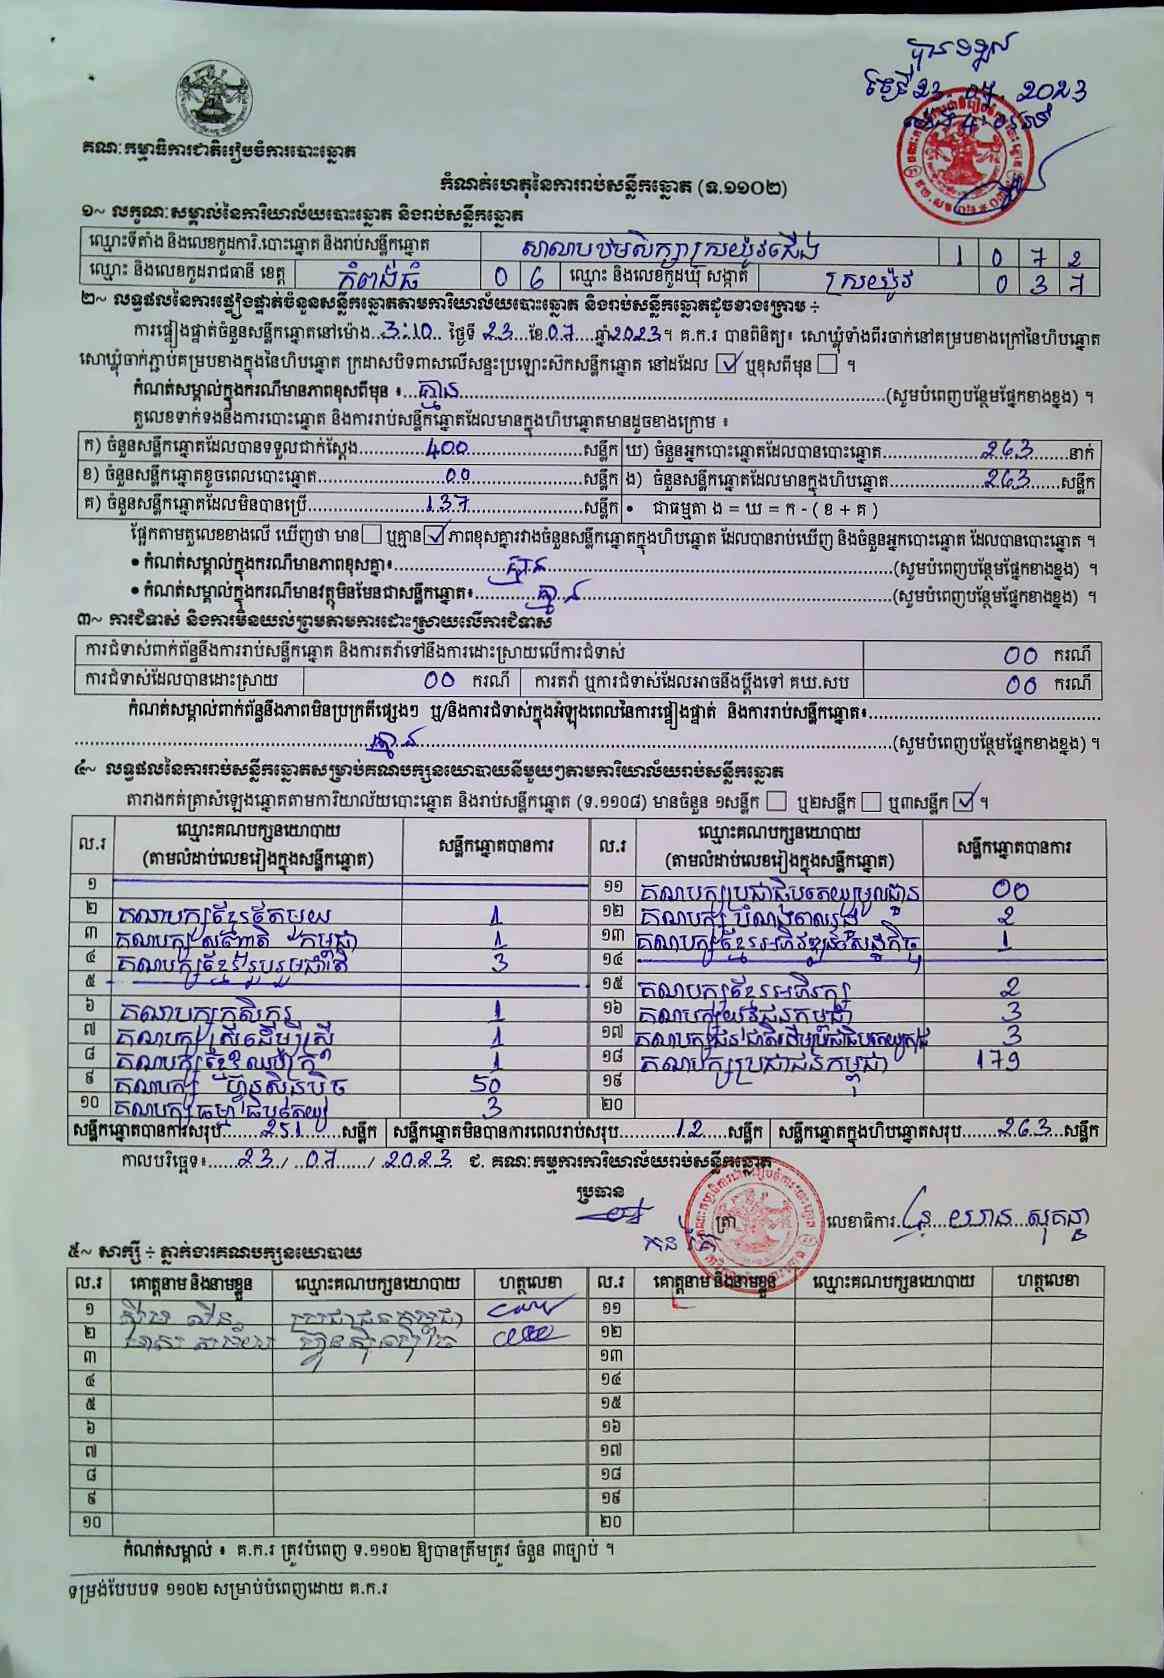 បានទទួល
ថ្ងៃទី 23. 07. 2023
គណៈកម្មាធិការជាតិរៀបចំការបោះឆ្នោត
កំណត់ហេតុនៃការរាប់សន្លឹកឆ្នោត (ទ.១១០២)
១~ លក្ខណៈសម្គាល់នៃការិយាល័យបោះឆ្នោត និងរាប់សន្លឹកឆ្នោត
ឈ្មោះទីតាំង និងលេខកូដការិ.បោះឆ្នោត និងរាប់សន្លឹកឆ្នោត សាលាបឋមសិក្សាស្រយ៉ូវជើង 1 0 7 2
ឈ្មោះ និងលេខកូដរាជធានី ខេត្ត កំពង់ធំ 0 6 ឈ្មោះ និងលេខកូដឃុំ សង្កាត់ ស្រយ៉ូវ 0 3 7
២~ លទ្ធផលនៃការផ្ទៀងផ្ទាត់ចំនួនសន្លឹកឆ្នោតតាមការិយាល័យបោះឆ្នោត និងរាប់សន្លឹកឆ្នោតដូចខាងក្រោម ÷
ការផ្ទៀងផ្ទាត់ចំនួនសន្លឹកឆ្នោតនៅម៉ោង..3:10.. ថ្ងៃទី 23...ខែ 07....ឆ្នាំ 2023។ គ.ក.រ បានពិនិត្យ៖ សោឃ្លុំទាំងពីរចាក់នៅគម្របខាងក្រៅនៃហិបឆ្នោត
សោឃ្លុំចាក់ភ្ជាប់គម្របខាងក្នុងនៃហិបឆ្នោត ក្រដាសបិទពាសលើសន្ទះប្រឡោះស៊កសន្លឹកឆ្នោត នៅដដែល ☑ ឬខុសពីមុន ☐ ។
កំណត់សម្គាល់ក្នុងករណីមានភាពខុសពីមុន ៖...គ្មាន.......(សូមបំពេញបន្ថែមផ្នែកខាងខ្នង) ។
តួលេខទាក់ទងនឹងការបោះឆ្នោត និងការរាប់សន្លឹកឆ្នោតដែលមានក្នុងហិបឆ្នោតមានដូចខាងក្រោម ៖
ក) ចំនួនសន្លឹកឆ្នោតដែលបានទទួលជាក់ស្តែង.......400.......សន្លឹក ឃ) ចំនួនអ្នកបោះឆ្នោតដែលបានបោះឆ្នោត.......263.......នាក់
ខ) ចំនួនសន្លឹកឆ្នោតខូចពេលបោះឆ្នោត.......00.......សន្លឹក ង) ចំនួនសន្លឹកឆ្នោតដែលមានក្នុងហិបឆ្នោត.......263.......សន្លឹក
គ) ចំនួនសន្លឹកឆ្នោតដែលមិនបានប្រើ.......137.......សន្លឹក • ជាធម្មតា ង = ឃ = ក - ( ខ + គ )
ផ្អែកតាមតួលេខខាងលើ ឃើញថា មាន ☐ ឬគ្មាន ☑ ភាពខុសគ្នារវាងចំនួនសន្លឹកឆ្នោតក្នុងហិបឆ្នោត ដែលបានរាប់ឃើញ និងចំនួនអ្នកបោះឆ្នោត ដែលបានបោះឆ្នោត ។
• កំណត់សម្គាល់ក្នុងករណីមានភាពខុសគ្នា៖.......គ្មាន.......(សូមបំពេញបន្ថែមផ្នែកខាងខ្នង) ។
• កំណត់សម្គាល់ក្នុងករណីមានវត្ថុមិនមែនជាសន្លឹកឆ្នោត៖.......គ្មាន.......(សូមបំពេញបន្ថែមផ្នែកខាងខ្នង) ។
៣~ ការជំទាស់ និងការមិនយល់ព្រមតាមការដោះស្រាយលើការជំទាស់
ការជំទាស់ពាក់ព័ន្ធនឹងការរាប់សន្លឹកឆ្នោត និងការតវ៉ាទៅនឹងការដោះស្រាយលើការជំទាស់ 00 ករណី
ការជំទាស់ដែលបានដោះស្រាយ 00 ករណី ការតវ៉ា ឬការជំទាស់ដែលអាចនឹងប្តឹងទៅ គឃ.សប 00 ករណី
កំណត់សម្គាល់ពាក់ព័ន្ធនឹងភាពមិនប្រក្រតីផ្សេងៗ ឬ/និងការជំទាស់ក្នុងអំឡុងពេលនៃការផ្ទៀងផ្ទាត់ និងការរាប់សន្លឹកឆ្នោត៖.......
.......គ្មាន.......(សូមបំពេញបន្ថែមផ្នែកខាងខ្នង) ។
៤~ លទ្ធផលនៃការរាប់សន្លឹកឆ្នោតសម្រាប់គណបក្សនយោបាយនីមួយៗតាមការិយាល័យរាប់សន្លឹកឆ្នោត
តារាងកត់ត្រាសំឡេងឆ្នោតតាមការិយាល័យបោះឆ្នោត និងរាប់សន្លឹកឆ្នោត (ទ.១១០៨) មានចំនួន ១សន្លឹក ☐ ឬ២សន្លឹក ☐ ឬ៣សន្លឹក ☑ ។
ល.រ ឈ្មោះគណបក្សនយោបាយ (តាមលំដាប់លេខរៀងក្នុងសន្លឹកឆ្នោត) សន្លឹកឆ្នោតបានការ ល.រ ឈ្មោះគណបក្សនយោបាយ (តាមលំដាប់លេខរៀងក្នុងសន្លឹកឆ្នោត) សន្លឹកឆ្នោតបានការ
១ ១១ គណបក្សប្រជាធិបតេយ្យមូលដ្ឋាន 00
២ គណបក្សខ្មែរតែមួយ 1 ១២ គណបក្ស បំណងពលរដ្ឋ 2
៣ គណបក្ស សញ្ជាតិ កម្ពុជា 1 ១៣ គណបក្សខ្មែរអភិវឌ្ឍន៍សេដ្ឋកិច្ច 1
៤ គណបក្សខ្មែររួបរួមជាតិ 3 ១៤
៥ ១៥ គណបក្សខ្មែរអភិរក្ស 2
៦ គណបក្សកសិករ 1 ១៦ គណបក្សយុវជនកម្ពុជា 3
៧ គណបក្សស្ត្រីដើម្បីស្ត្រី 1 ១៧ គណបក្សជនជាតិដើមប្រជាធិបតេយ្យកម្ពុជា 3
៨ គណបក្សខ្មែរឈប់ក្រ 1 ១៨ គណបក្សប្រជាជនកម្ពុជា 179
៩ គណបក្ស ហ៊្វុនស៊ិនប៉ិច 50 ១៩
១០ គណបក្សធម្មាធិបតេយ្យ 3 ២០
សន្លឹកឆ្នោតបានការសរុប.......251.......សន្លឹក សន្លឹកឆ្នោតមិនបានការពេលរាប់សរុប.......12.....សន្លឹក សន្លឹកឆ្នោតក្នុងហិបឆ្នោតសរុប.......263...សន្លឹក
កាលបរិច្ឆេទ៖......23./...07....../.2023. ជ. គណៈកម្មការការិយាល័យរាប់សន្លឹកឆ្នោត
ប្រធាន
ត្រា លេខាធិការ
៥~ សាក្សី ÷ ភ្នាក់ងារគណបក្សនយោបាយ
ល.រ គោត្តនាម និងនាមខ្លួន ឈ្មោះគណបក្សនយោបាយ ហត្ថលេខា ល.រ គោត្តនាម និងនាមខ្លួន ឈ្មោះគណបក្សនយោបាយ ហត្ថលេខា
១ ប្រជាជនកម្ពុជា ១១
២ ហ៊្វុនស៊ិនប៉ិច ១២
៣ ១៣
៤ ១៤
៥ ១៥
៦ ១៦
៧ ១៧
៨ ១៨
៩ ១៩
១០ ២០
កំណត់សម្គាល់ ៖ គ.ក.រ ត្រូវបំពេញ ទ.១១០២ ឱ្យបានត្រឹមត្រូវ ចំនួន ៣ច្បាប់ ។
ទម្រង់បែបបទ ១១០២ សម្រាប់បំពេញដោយ គ.ក.រ